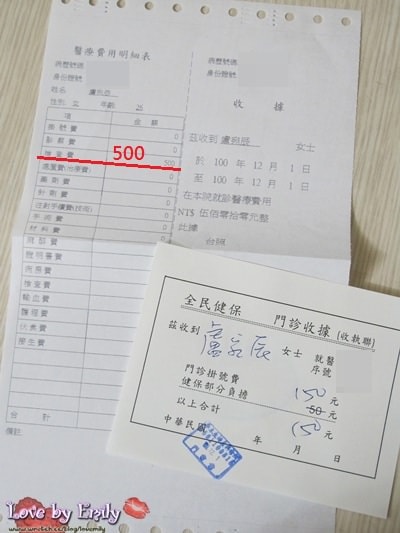 醫療費用明細表
病歷號碼
身份證號
姓名
性別: 女 年齡 28
項 金額
掛號費 0
診察費 0
500
檢查費 500
處置費(治療費)
藥劑費
針劑費
注射手續費(技術)
手術費
材料費
麻醉費
證明書費
病房費
檢查費
輸血費
護理費
伙食費
接生費
合計
備註
病歷號碼
身份證號
收據
茲收到 女士
於 100 年 12 月 1 日
至 100 年 12 月 1 日
在本院就診醫療費用
NT$ 伍佰零拾零元整
此據
台照
全民健保 門診收據 (收執聯)
茲收到 女士 就醫序號
門診掛號費 150 元
健保部分負擔 50 元
以上合計 150 元
中華民國 年 月 日
Love by Emily
www.wretch.cc/blog/lovemily